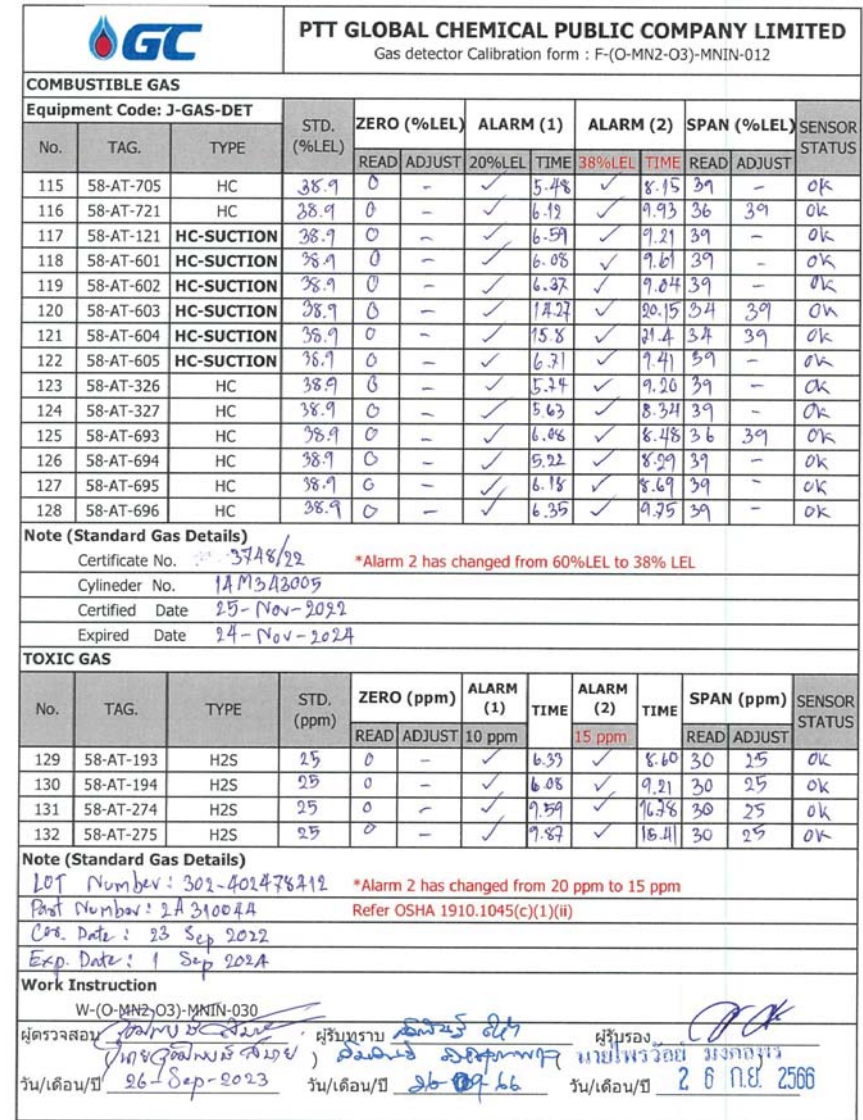 GC
PTT GLOBAL CHEMICAL PUBLIC COMPANY LIMITED
Gas detector Calibration form : F-(O-MN2-O3)-MNIN-012
COMBUSTIBLE GAS
Equipment Code: J-GAS-DET STD. (%LEL) ZERO (%LEL) ALARM (1) ALARM (2) SPAN (%LEL) SENSOR STATUS
No. TAG. TYPE READ ADJUST 20%LEL TIME 38%LEL TIME READ ADJUST
115 58-AT-705 HC 38.9 0 - ✓ 5.48 ✓ 8.15 39 - OK
116 58-AT-721 HC 38.9 0 - ✓ 6.12 ✓ 9.93 36 39 OK
117 58-AT-121 HC-SUCTION 38.9 0 - ✓ 6.59 ✓ 9.21 39 - OK
118 58-AT-601 HC-SUCTION 38.9 0 - ✓ 6.08 ✓ 9.61 39 - OK
119 58-AT-602 HC-SUCTION 38.9 0 - ✓ 6.37 ✓ 9.04 39 - OK
120 58-AT-603 HC-SUCTION 38.9 0 - ✓ 14.27 ✓ 20.15 34 39 OK
121 58-AT-604 HC-SUCTION 38.9 0 - ✓ 15.8 ✓ 21.4 34 39 OK
122 58-AT-605 HC-SUCTION 38.9 0 - ✓ 6.71 ✓ 9.41 39 - OK
123 58-AT-326 HC 38.9 0 - ✓ 5.74 ✓ 9.20 39 - OK
124 58-AT-327 HC 38.9 0 - ✓ 5.63 ✓ 8.34 39 - OK
125 58-AT-693 HC 38.9 0 - ✓ 6.08 ✓ 8.48 36 39 OK
126 58-AT-694 HC 38.9 0 - ✓ 5.22 ✓ 8.29 39 - OK
127 58-AT-695 HC 38.9 0 - ✓ 6.18 ✓ 8.69 39 - OK
128 58-AT-696 HC 38.9 0 - ✓ 6.35 ✓ 9.75 39 - OK
Note (Standard Gas Details)
Certificate No. 3748/22 *Alarm 2 has changed from 60%LEL to 38% LEL
Cylineder No.
Certified Date 25-Nov-2022
Expired Date 24-Nov-2024
TOXIC GAS
No. TAG. TYPE STD. (ppm) ZERO (ppm) ALARM (1) TIME ALARM (2) TIME SPAN (ppm) SENSOR STATUS
READ ADJUST 10 ppm 15 ppm READ ADJUST
129 58-AT-193 H2S 25 0 - ✓ 6.33 ✓ 8.60 30 25 OK
130 58-AT-194 H2S 25 0 - ✓ 6.08 ✓ 9.21 30 25 OK
131 58-AT-274 H2S 25 0 - ✓ 9.59 ✓ 16.78 30 25 OK
132 58-AT-275 H2S 25 0 - ✓ 9.87 ✓ 18.41 30 25 OK
Note (Standard Gas Details)
LOT Number: 302-402478412 *Alarm 2 has changed from 20 ppm to 15 ppm
Part Number: Refer OSHA 1910.1045(c)(1)(ii)
Cer. Date : 23 Sep 2022
Exp. Date : 1 Sep 2024
Work Instruction
W-(O-MN2-O3)-MNIN-030
ผู้ตรวจสอบ ผู้รับทราบ ผู้รับรอง
วัน/เดือน/ปี 26-Sep-2023 วัน/เดือน/ปี 26-09-66 วัน/เดือน/ปี 2 6 ก.ย. 2566